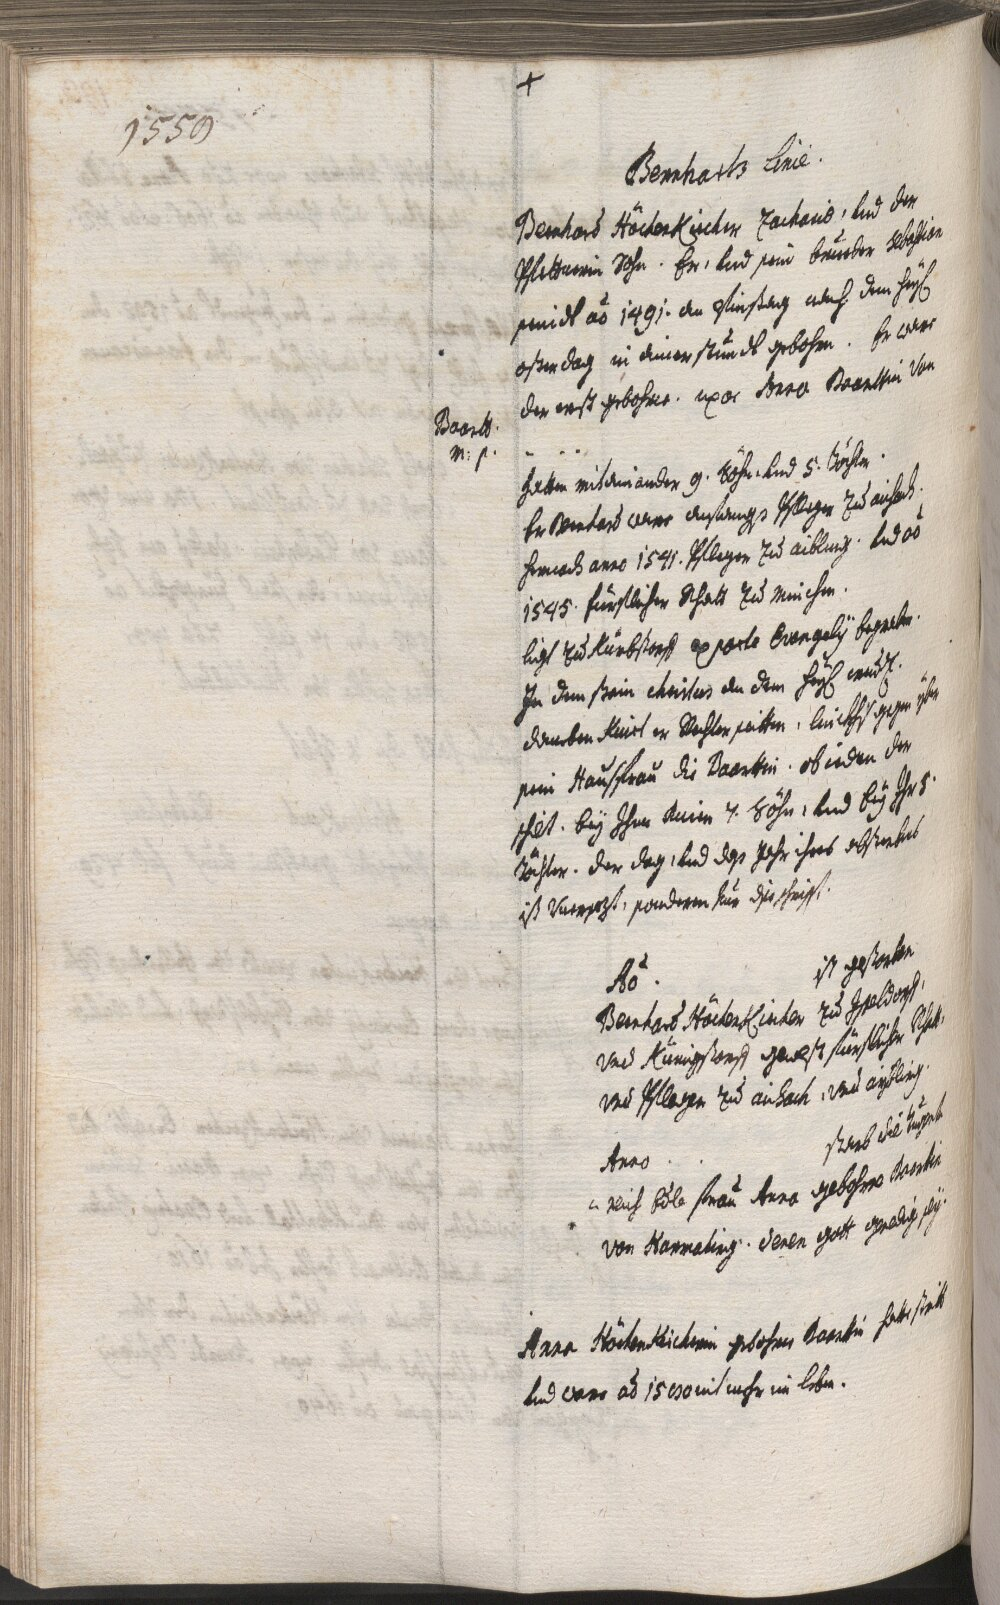 1559
+
Bernharts Linie.
Bernhard Höckenkircher Zachariæ, und der
Pflettnerin Sohn. Er, und sein brueder Sebastian
seind aō 1491. an Pfinstag nach dem heyl
ostertag in einer stundt gebohren. Er ware
der erst gebohrne. uxor Anna Baarttin von
Baartt.
m: p.
hatten miteinander 9. Söhn, und 5. Töchter.
Er Bernhard ware anfangs Pfleger zu aichach.
hernach anno 1541. Pfleger zu aibling. und aō
1545. fürstlicher Rhatt zu München.
ligt zu ex parte Evangelÿ begraben.
In dem stain christus an dem heyl creüz.
daneben kniet er Rechter seitten, linckhs gegen yber
sein Hausfrau die Baarttin. ob ieden der
schilt. beÿ Ihme knien 7. Söhn, und beÿ Ihr 5.
Töchter. der dag, und das Jahr ihres absterbens
ist, sonderen nur die schrifft.
Aō. ist gestorben
Bernhard Höckenkircher zu
und gewest fürstlicher Rhatt,
und Pfleger zu aichach, und aybling.
Anno . . starb die tugent
reich Edle frau Anna gebohrne Baartin
von Harmating. denen gott genedig seÿ.
Anna Höckenkircherin gebohrne Baarttin
und ware aō nit mehr im leben.